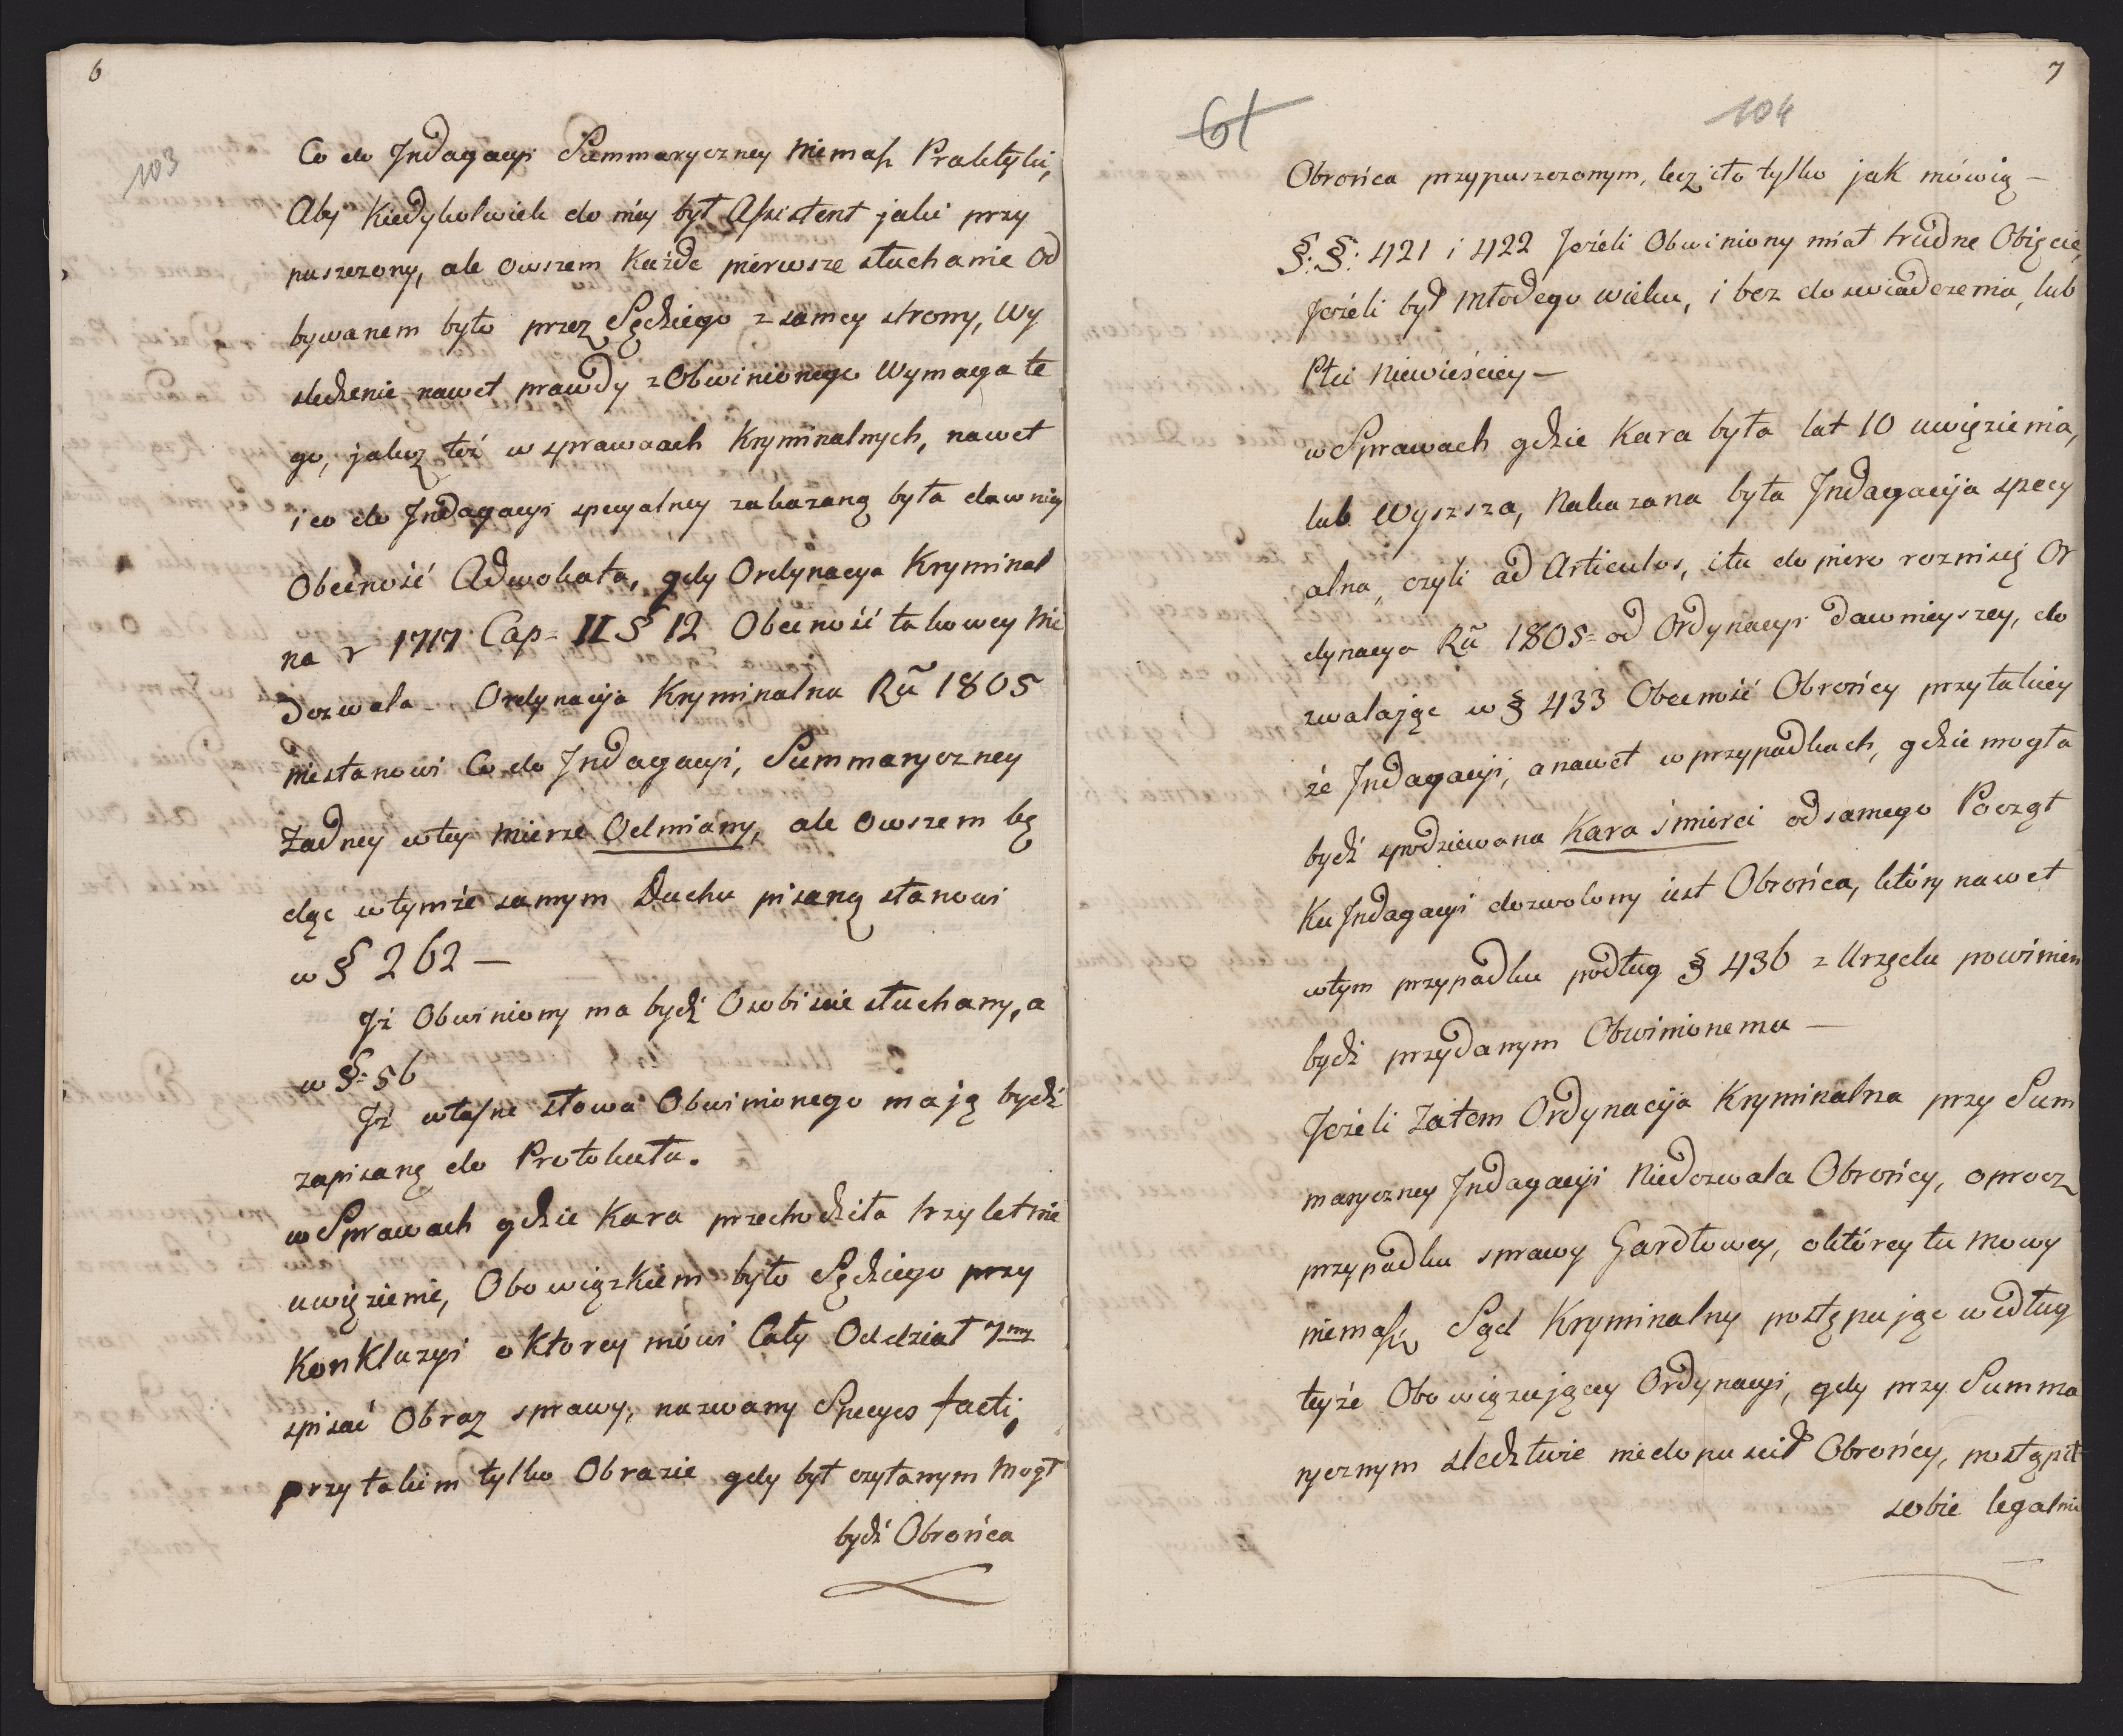 6
103
Co do Indagacyi Summaryczney niemasz Praktyki,
Aby kiedykolwiek do niey był Assistent jaki przy
puszczony, ale owszem każde pierwsze słuchanie od
bywanem było przez Sędziego z samey strony, Wy
śledzenie nawet prawdy z Obwinionego Wymaga te
go, jakoż też w sprawaach Kryminalnych, nawet
i co do Indagacyi specyalney zakazaną była dawniey
Obecność Adwokata, gdy Ordynacya Kryminal
na r 1717 Cap= II § 12 Obecność takowey nie
dozwala – Ordynacyja Kryminalna Rũ 1805
niestanowi Co do Indagacyi, Summaryczney
Żadney wtey mierze Odmiany, ale owszem bę
dąc wtymże samym Duchu pisaną stanowi
w § 262 —
Iż Obwiniony ma bydź Osobiście słuchany, a
w §: 56
Iż własne słowa Obwinionego mają bydź
zapisane do Protokułu.
w Sprawach gdzie Kara przechodziła trzyletnie
uwięzienie, Obowiązkiem było Sędziego przy
Konkluzyi o ktorey mówi Cały Oddział 7my
spisać Obraz sprawy, nazwany Species facti,
przy takim tylko Obrazie gdy był czytanym mógł
bydź Obrońca
7
61
104
Obrońca przypuszczonym, lecz i to tylko jak mówią –
§: §: 421 i 422 Jeżeli Obwiniony miał trudne Objęcie,
Jeżeli był młodego wieku, i bez doświadczenia, lub
Płci Niewieściey —
w Sprawach gdzie Kara była lat 10 uwięzienia,
lub Wyższa, Nakazana była Indagacyja specy
alna, czyli ad Articulos, i tu dopiero rozni się Or
dynacya Rũ 1805= od Ordynacyi dawnieyszey, do
zwalając w § 433 Obecność Obrońcy przy takiey
że Indagacyi, a nawet w przypadkach, gdzie mogła
bydź spodziewana Kara śmierci od samego Począt
Ku Indagacyi dozwolony iest Obrońca, który nawet
wtym przypadku podług § 436 z Urzędu powinien
bydź przydanym Obwinionemu —
Jeżeli Zatem Ordynacyja Kryminalna przy Sum
maryczney Indagacyi Niedozwala Obrońcy, oprocz
przypadku sprawy Gardłowey, o którey tu Mowy
niemasz, Sąd Kryminalny postępując według
teyże Obowiązującey Ordynacyi, gdy przy Summa
rycznym śledztwie niedopuścił Obrońcy, postąpił
sobie legalnie